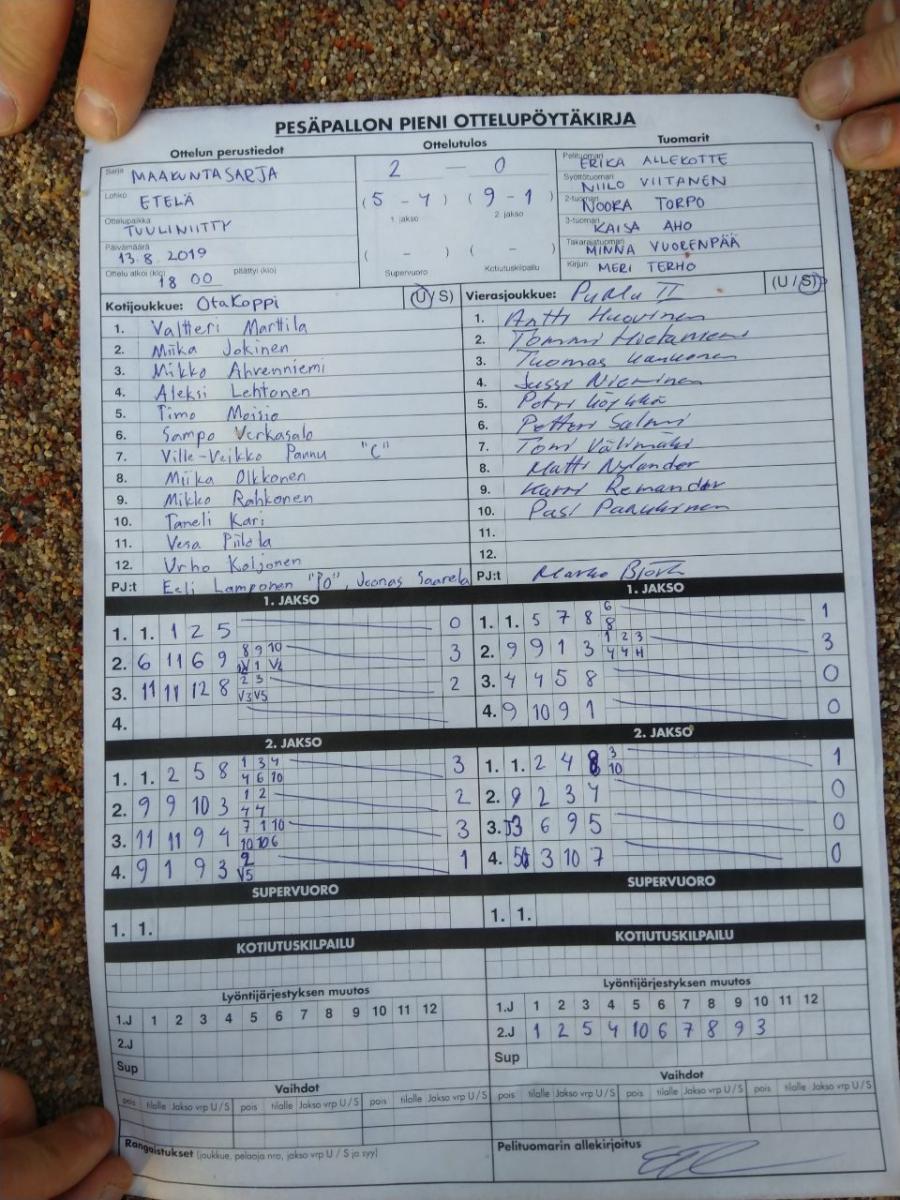 PESÄPALLON PIENI OTTELUPÖYTÄKIRJA
Ottelun perustiedot
Ottelutulos
Tuomarit
Sarja MAAKUNTASARJA
2 — 0
Pelituomari ERIKA ALLEKOTTE
Lohko ETELÄ
(5 - 4) (9 - 1)
Syöttötuomari NIILO VIITANEN
1. jakso 2. jakso
2-tuomari NOORA TORPO
Ottelupaikka TUULINIITTY
3-tuomari KAISA AHO
Päivämäärä 13.8.2019
( - ) ( - )
Takarajatuomari MINNA VUORENPÄÄ
Ottelu alkoi (klo) 18 00 päättyi (klo)
Supervuoro Kotiutuskilpailu
Kirjuri MERI TERHO
Kotijoukkue: OtaKoppi (U/S)
Vierasjoukkue: PuMu II (U/S)
1. Valtteri Marttila
2. Miika Jokinen
3. Mikko Ahvenniemi
4. Aleksi Lehtonen
5. Timo Moisio
6. Sampo Verkasalo
7. Ville-Veikko Pannu "C"
8. Miika Olkkonen
9. Mikko Rahkonen
10. Taneli Kari
11. Vesa Piilola
12. Urho Koljonen
PJ:t Eeli Lamponen "PO", Joonas Saarela
1. Antti Huovinen
2. Tommi Hietaniemi
3. Tuomas
4. Jussi Nieminen
5. Petri
6. Petteri Salmi
7. Tomi Välimäki
8. Matti Nylander
9. Karri Remander
10. Pasi
11.
12.
PJ:t Marko Björk
1. JAKSO
1. 1. 1 2 5 0
2. 6 11 6 9 8 9 10 3
1 V2
3. 11 11 12 8 2 3 2
V3 V5
4.
1. JAKSO
1. 1. 5 7 8 6 1
8
2. 9 9 1 3 1 2 3 3
4 4 H
3. 4 4 5 8 0
4. 9 10 9 1 0
2. JAKSO
1. 1. 2 5 8 1 3 4 3
4 6 10
2. 9 9 10 3 1 2 2
4 4
3. 11 11 9 4 7 1 10 3
10 10 6
4. 9 1 9 3 2 1
V5
2. JAKSO
1. 1. 2 4 8 3 1
10
2. 9 2 3 4 0
3. 3 6 9 5 0
4. 5 3 10 7 0
SUPERVUORO
1. 1.
SUPERVUORO
1. 1.
KOTIUTUSKILPAILU
KOTIUTUSKILPAILU
Lyöntijärjestyksen muutos
1.J 1 2 3 4 5 6 7 8 9 10 11 12
2.J
Sup
Lyöntijärjestyksen muutos
1.J 1 2 3 4 5 6 7 8 9 10 11 12
2.J 1 2 5 4 10 6 7 8 9 3
Sup
Vaihdot
pois tilalle Jakso vrp U / S pois tilalle Jakso vrp U / S pois tilalle Jakso vrp U / S
Vaihdot
pois tilalle Jakso vrp U / S pois tilalle Jakso vrp U / S pois tilalle Jakso vrp U / S
Rangaistukset (joukkue, pelaaja nro, jakso vrp U / S ja syy)
Pelituomarin allekirjoitus